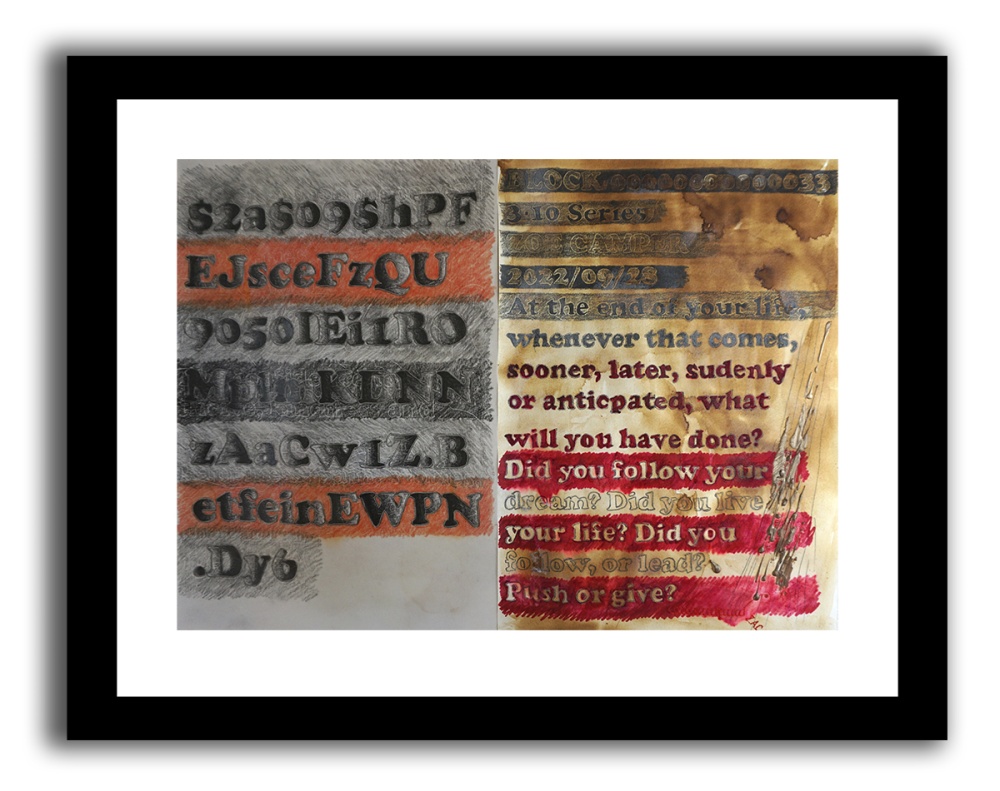 $2a$09$hPF
EJsceFzQU
9050IEi1RO
zAaCw1Z.B
etfeinEWPN
.Dy6
3:10 Series1
CAMPER
2022/09/28
At the end of your life,
whenever that comes,
sooner, later, sudenly
or anticpated, what
will you have done?
Did you follow your
dream? Did you live
your life? Did you
follow, or lead?
Push or give?